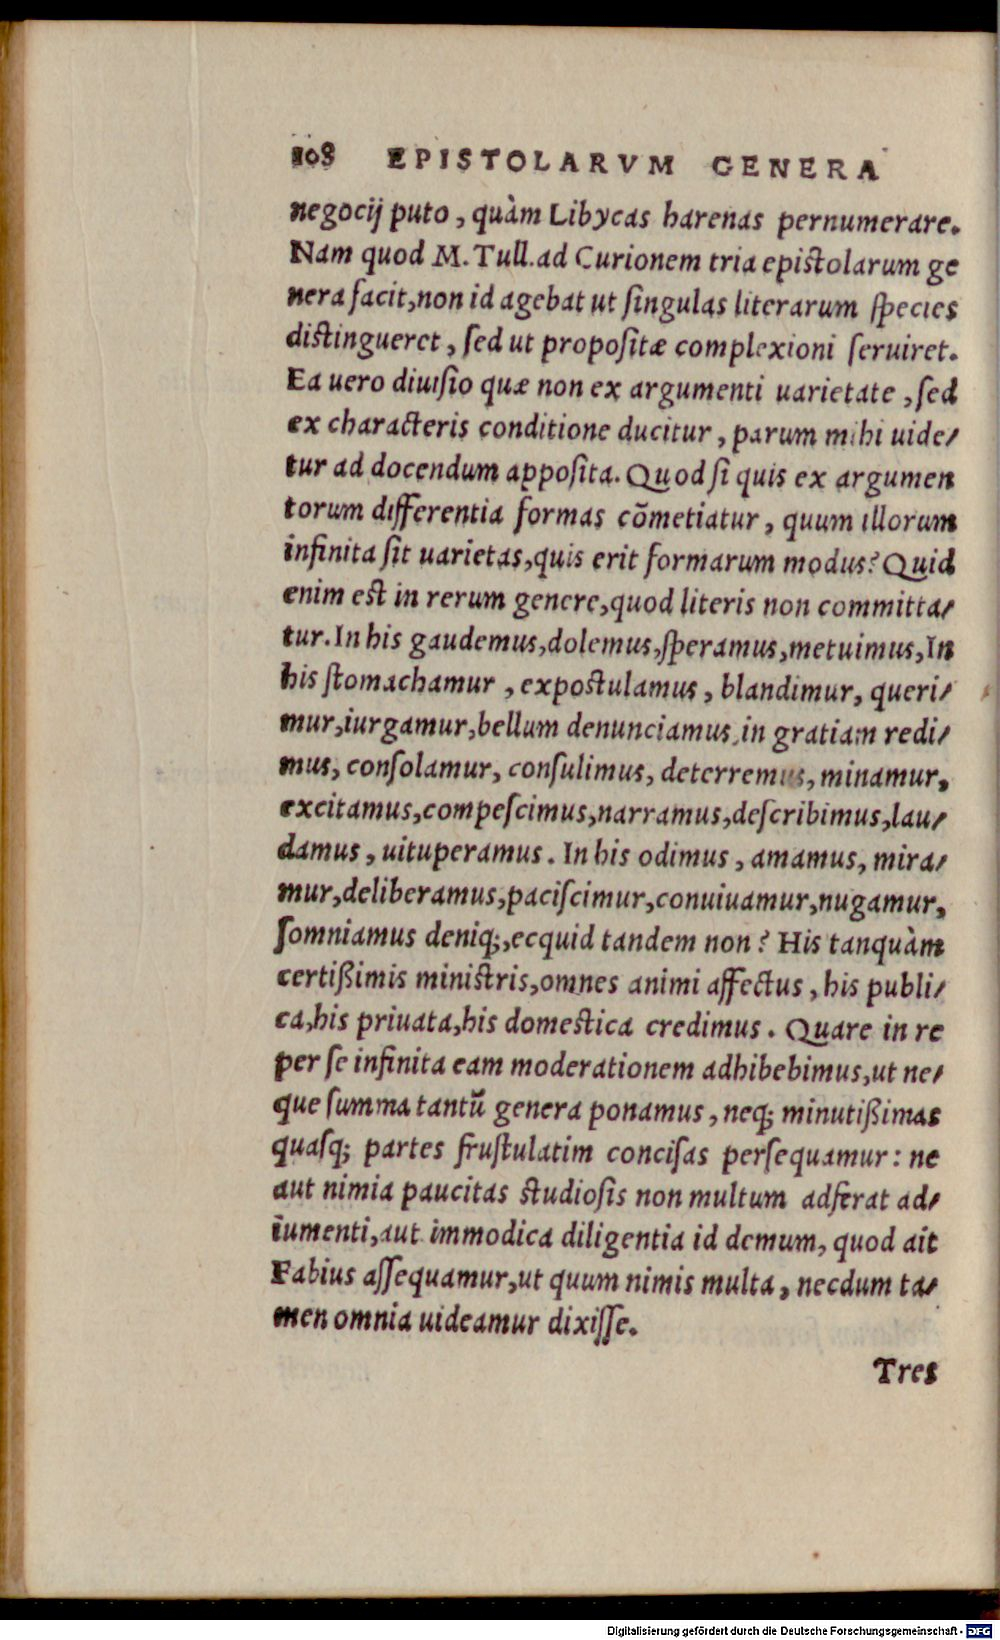 108 EPISTOLARVM GENERA
negocij puto, quàm Libycas harenas pernumerare.
Nam quod M. Tull. ad Curionem tria epistolarum ge
nera facit, non id agebat ut singulas literarum species
distingueret, sed ut propositæ complexioni seruiret.
Ea uero diuisio quæ non ex argumenti uarietate, sed
ex characteris conditione ducitur, parum mihi uide/
tur ad docendum apposita. Quod si quis ex argumen
torum differentia formas cõmetiatur, quum illorum
infinita sit uarietas, quis erit formarum modus? Quid
enim est in rerum genere, quod literis non committa/
tur. In his gaudemus, dolemus, speramus, metuimus, In
his stomachamur, expostulamus, blandimur, queri/
mur, iurgamur, bellum denunciamus, in gratiam redi/
mus, consolamur, consulimus, deterremus, minamur,
excitamus, compescimus, narramus, describimus, lau/
damus, uituperamus. In his odimus, amamus, mira/
mur, deliberamus, paciscimur, conuiuamur, nugamur,
somniamus deniq;, ecquid tandem non? His tanquàm
certißimis ministris, omnes animi affectus, his publi/
ca, his priuata, his domestica credimus. Quare in re
per se infinita eam moderationem adhibebimus, ut ne/
que summa tantũ genera ponamus, neq; minutißimas
quasq; partes frustulatim concisas persequamur: ne
aut nimia paucitas studiosis non multum adferat ad/
iumenti, aut immodica diligentia id demum, quod ait
Fabius assequamur, ut quum nimis multa, necdum ta/
men omnia uideamur dixisse.
Tres
Digitalisierung gefördert durch die Deutsche Forschungsgemeinschaft - DFG